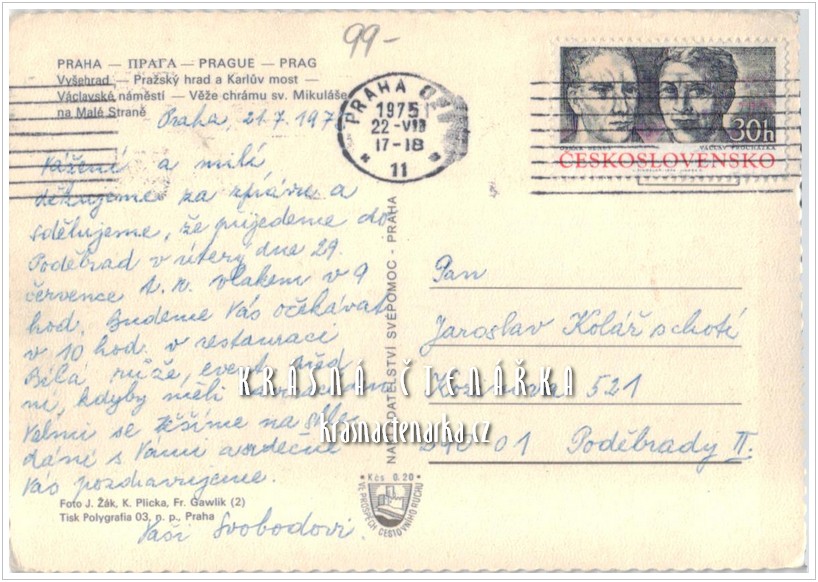 99-
PRAHA — ПРАГА — PRAGUE — PRAG
Vyšehrad — Pražský hrad a Karlův most —
Václavské náměstí — Věže chrámu sv. Mikuláše
na Malé Straně
Praha, 21.7.197
Vážení a milí
děkujeme za zprávu a
sdělujeme, že přijedeme do
Poděbrad v úterý dne 29.
července t. r. vlakem v 9
hod. Budeme Vás očekávat
v 10 hod. v restauraci
Bílá růže, event. před
ní, kdyby měli
Velmi se těšíme na shle-
dání s Vámi a srdečně
Vás pozdravujeme.
Vaši Svobodovi.
Foto J. Žák, K. Plicka, Fr. Gawlik (2)
Tisk Polygrafia 03, n. p., Praha
PRAHA
1975
22-VII
17-18
11
30h
VÁCLAV PROCHÁZKA
ČESKOSLOVENSKO
NAKLADATELSTVÍ SVÉPOMOC - PRAHA
Kčs 0,20
VE PROSPĚCH CESTOVNÍHO RUCHU
Pan
Jaroslav Kolář s chotí
521
290 01 Poděbrady II.
KRÁSNÁ ČTENÁŘKA
krasnactenarka.cz